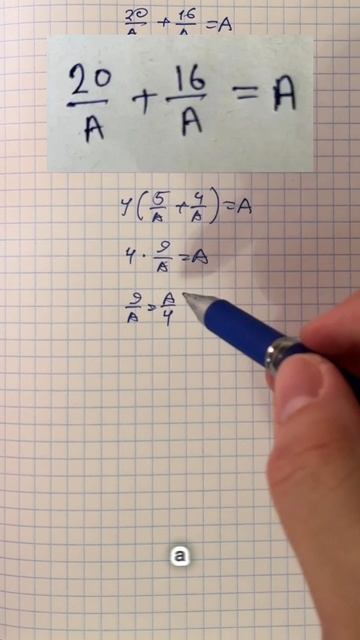 20/A + 16/A = A
20/A + 16/A = A
4(5/A + 4/A) = A
4 · 9/A = A
9/A = A/4
a